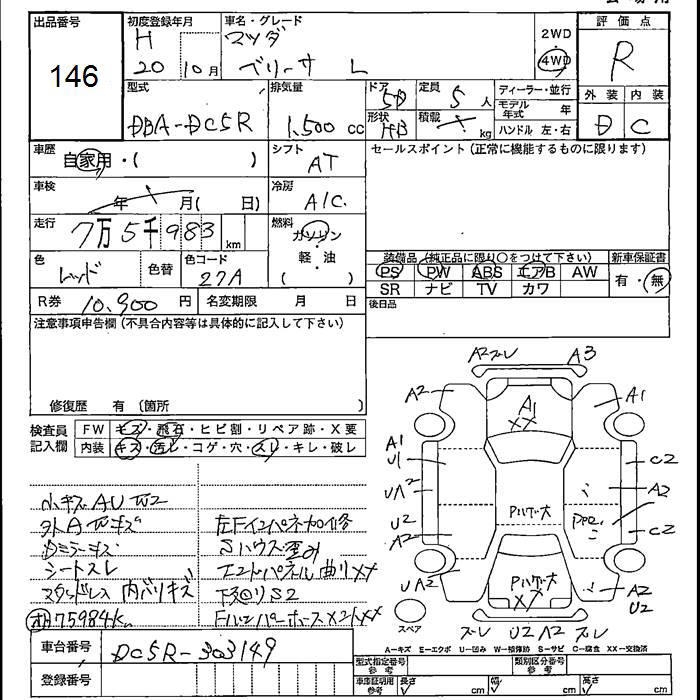 出品番号
146
初度登録年月
H
20 10月
車名・グレード
マツダ
ベリーサ L
2WD
4WD
評価点
R
外装 内装
D C
型式
DBA-DC5R
排気量
1,500 cc
ドア
5D
形状
HB
定員
5 人
積載
kg
ディーラー・並行
モデル年式 年
ハンドル 左・右
車歴
自家用・( )
シフト
AT
セールスポイント(正常に機能するものに限ります)
車検
年 月( 日)
冷房
A/C.
走行
7万5千983
km
燃料
ガソリン
軽・油
( )
色
レッド
色替
色コード
27A
装備品(純正品に限り○をつけて下さい)
PS PW ABS エアB AW
SR ナビ TV カワ
新車保証書
有・無
R券 10,900 円
名変期限 月 日
後日品
注意事項申告欄(不具合内容等は具体的に記入して下さい)
修復歴 有(箇所 )
検査員
記入欄
FW キズ・飛石・ヒビ割・リペア跡・X要
内装 キズ・汚レ・コゲ・穴・スレ・キレ・破レ
小キズAU W2
外AWキズ
Dミラーキズ
シートスレ
スタッドレス 内バリキズ
75984k
左Fインパネ加修
Sハウス歪み
エンドパネル曲りXX
下廻りS2
FバンパーホースメントXX
A2スレ A3
A2
A1
XX
A1
A1
U1
C2
UA2
A2
U2
A2
C2
Pハゲ大
UA2
Pハゲ大
XX
A2
U2
スペア
スレ U2 A2 スレ
A-キズ E-エクボ U-凹み W-補修跡 S-サビ C-腐食 XX-交換済
車台番号
DC5R-303149
登録番号
型式指定番号
参考
類別区分番号
参考
車庫証明用
参考
長さ cm
幅 cm
高さ cm